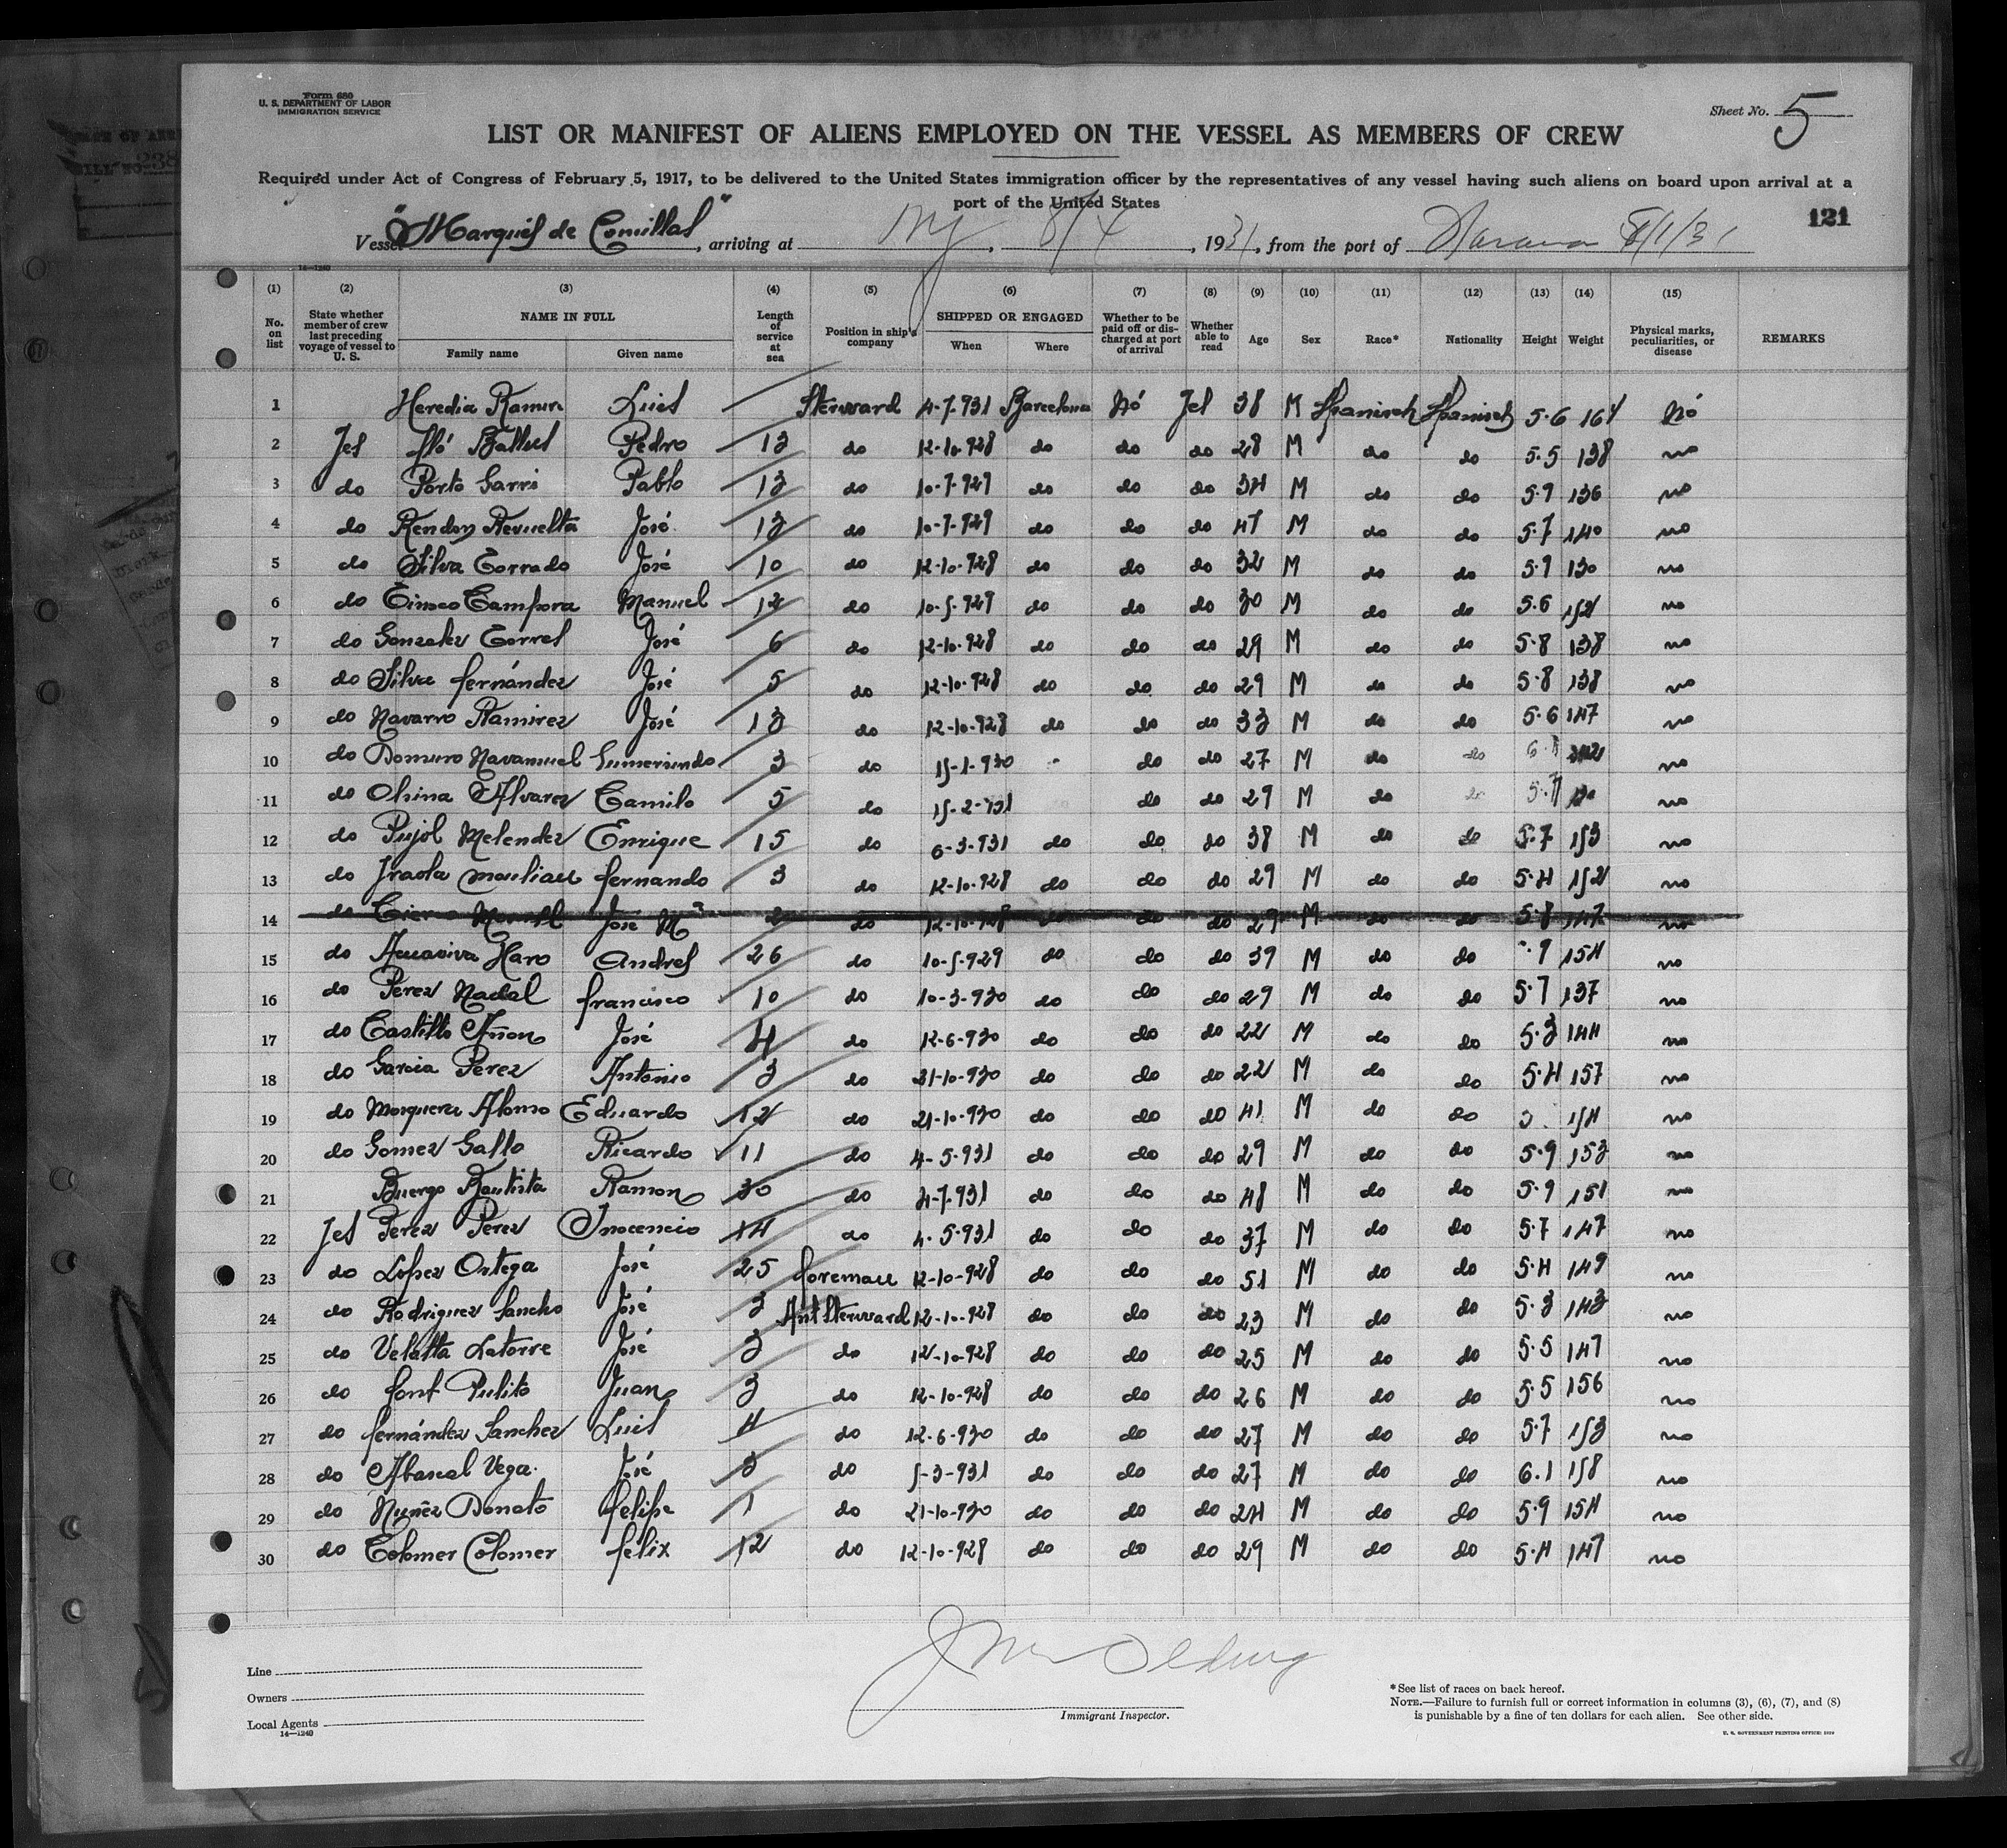 Form 680
U. S. DEPARTMENT OF LABOR
IMMIGRATION SERVICE
Sheet No. 5
LIST OR MANIFEST OF ALIENS EMPLOYED ON THE VESSEL AS MEMBERS OF CREW
Required under Act of Congress of February 5, 1917, to be delivered to the United States immigration officer by the representatives of any vessel having such aliens on board upon arrival at a
port of the United States
121
Vessel "Marqués de Comillas", arriving at NY, 8/4, 1931, from the port of Havana 8/1/31
14—1240
(1) (2) (3) (4) (5) (6) (7) (8) (9) (10) (11) (12) (13) (14) (15)
No. on list State whether member of crew last preceding voyage of vessel to U. S. NAME IN FULL Family name Given name Length of service at sea Position in ship's company SHIPPED OR ENGAGED When Where Whether to be paid off or discharged at port of arrival Whether able to read Age Sex Race* Nationality Height Weight Physical marks, peculiarities, or disease REMARKS
1 Heredia Luis Sterward 4-7-931 Barcelona Nó Jes 38 M Spanisch Spanisch 5.6 164 Nó
2 Jes Pedro 13 do 12-10-928 do do do 28 M do do 5.5 138 no
3 do Porto Garri Pablo 13 do 10-7-929 do do do 34 M do do 5.9 136 no
4 do Rendon Revuelta José 13 do 10-7-929 do do do 47 M do do 5.7 140 no
5 do Silva Corrado José 10 do 12-10-928 do do do 32 M do do 5.9 130 no
6 do Manuel 12 do 10-5-929 do do do 30 M do do 5.6 152 no
7 do Gonzalez Correl José 6 do 12-10-928 do do do 29 M do do 5.8 138 no
8 do Silva fernández José 5 do 12-10-928 do do do 29 M do do 5.8 138 no
9 do Navarro Ramirez José 13 do 12-10-928 do do do 33 M do do 5.6 147 no
10 do Domuro Gumersindo 3 do 15-1-930 do do 27 M do do no
11 do Alvarez Camilo 5 do 15-2-931 do do 29 M do do no
12 do Pujol Melendez Enrique 15 do 6-3-931 do do do 38 M do do 5.7 153 no
13 do fernando 3 do 12-10-928 do do do 29 M do do 5.4 152 no
14 do José Mª 2 do 12-10-928 do do do 29 M do do 5.8 147 no
15 do Haro Andres 26 do 10-5-929 do do do 39 M do do 154 no
16 do Perez Nadal francisco 10 do 10-3-930 do do do 29 M do do 5.7 137 no
17 do Castillo Añon José 4 do 12-6-930 do do do 22 M do do 5.3 144 no
18 do Garcia Perez Antonio 3 do 21-10-930 do do do 22 M do do 5.4 157 no
19 do Mosquera Alonso Eduardo 12 do 21-10-930 do do do 41 M do do 154 no
20 do Gomez Gallo Ricardo 11 do 4-5-931 do do do 29 M do do 5.9 153 no
21 Buergo Bautista Ramon 30 do 4-7-931 do do do 48 M do do 5.9 151 no
22 Jes Perez Perez Inocencio 14 do 4-5-931 do do do 37 M do do 5.7 147 no
23 do Lopez Ortega José 25 foreman 12-10-928 do do do 51 M do do 5.4 149 no
24 do Rodriguez Sancho José 3 Ant Sterward 12-10-928 do do do 23 M do do 5.3 143 no
25 do Latorre José 3 do 12-10-928 do do do 25 M do do 5.5 147 no
26 do font Pulito Juan 3 do 12-10-928 do do do 26 M do do 5.5 156 no
27 do fernández Sanchez Luis 4 do 12-6-930 do do do 27 M do do 5.7 153 no
28 do Abascal Vega José 3 do 5-3-931 do do do 27 M do do 6.1 158 no
29 do Nuñez Donato felipe 1 do 21-10-930 do do do 24 M do do 5.9 154 no
30 do Colomer Colomer felix 12 do 12-10-928 do do do 29 M do do 5.4 147 no
Line
Owners
Local Agents
14—1240
Immigrant Inspector.
*See list of races on back hereof.
NOTE.—Failure to furnish full or correct information in columns (3), (6), (7), and (8)
is punishable by a fine of ten dollars for each alien. See other side.
U. S. GOVERNMENT PRINTING OFFICE: 1929